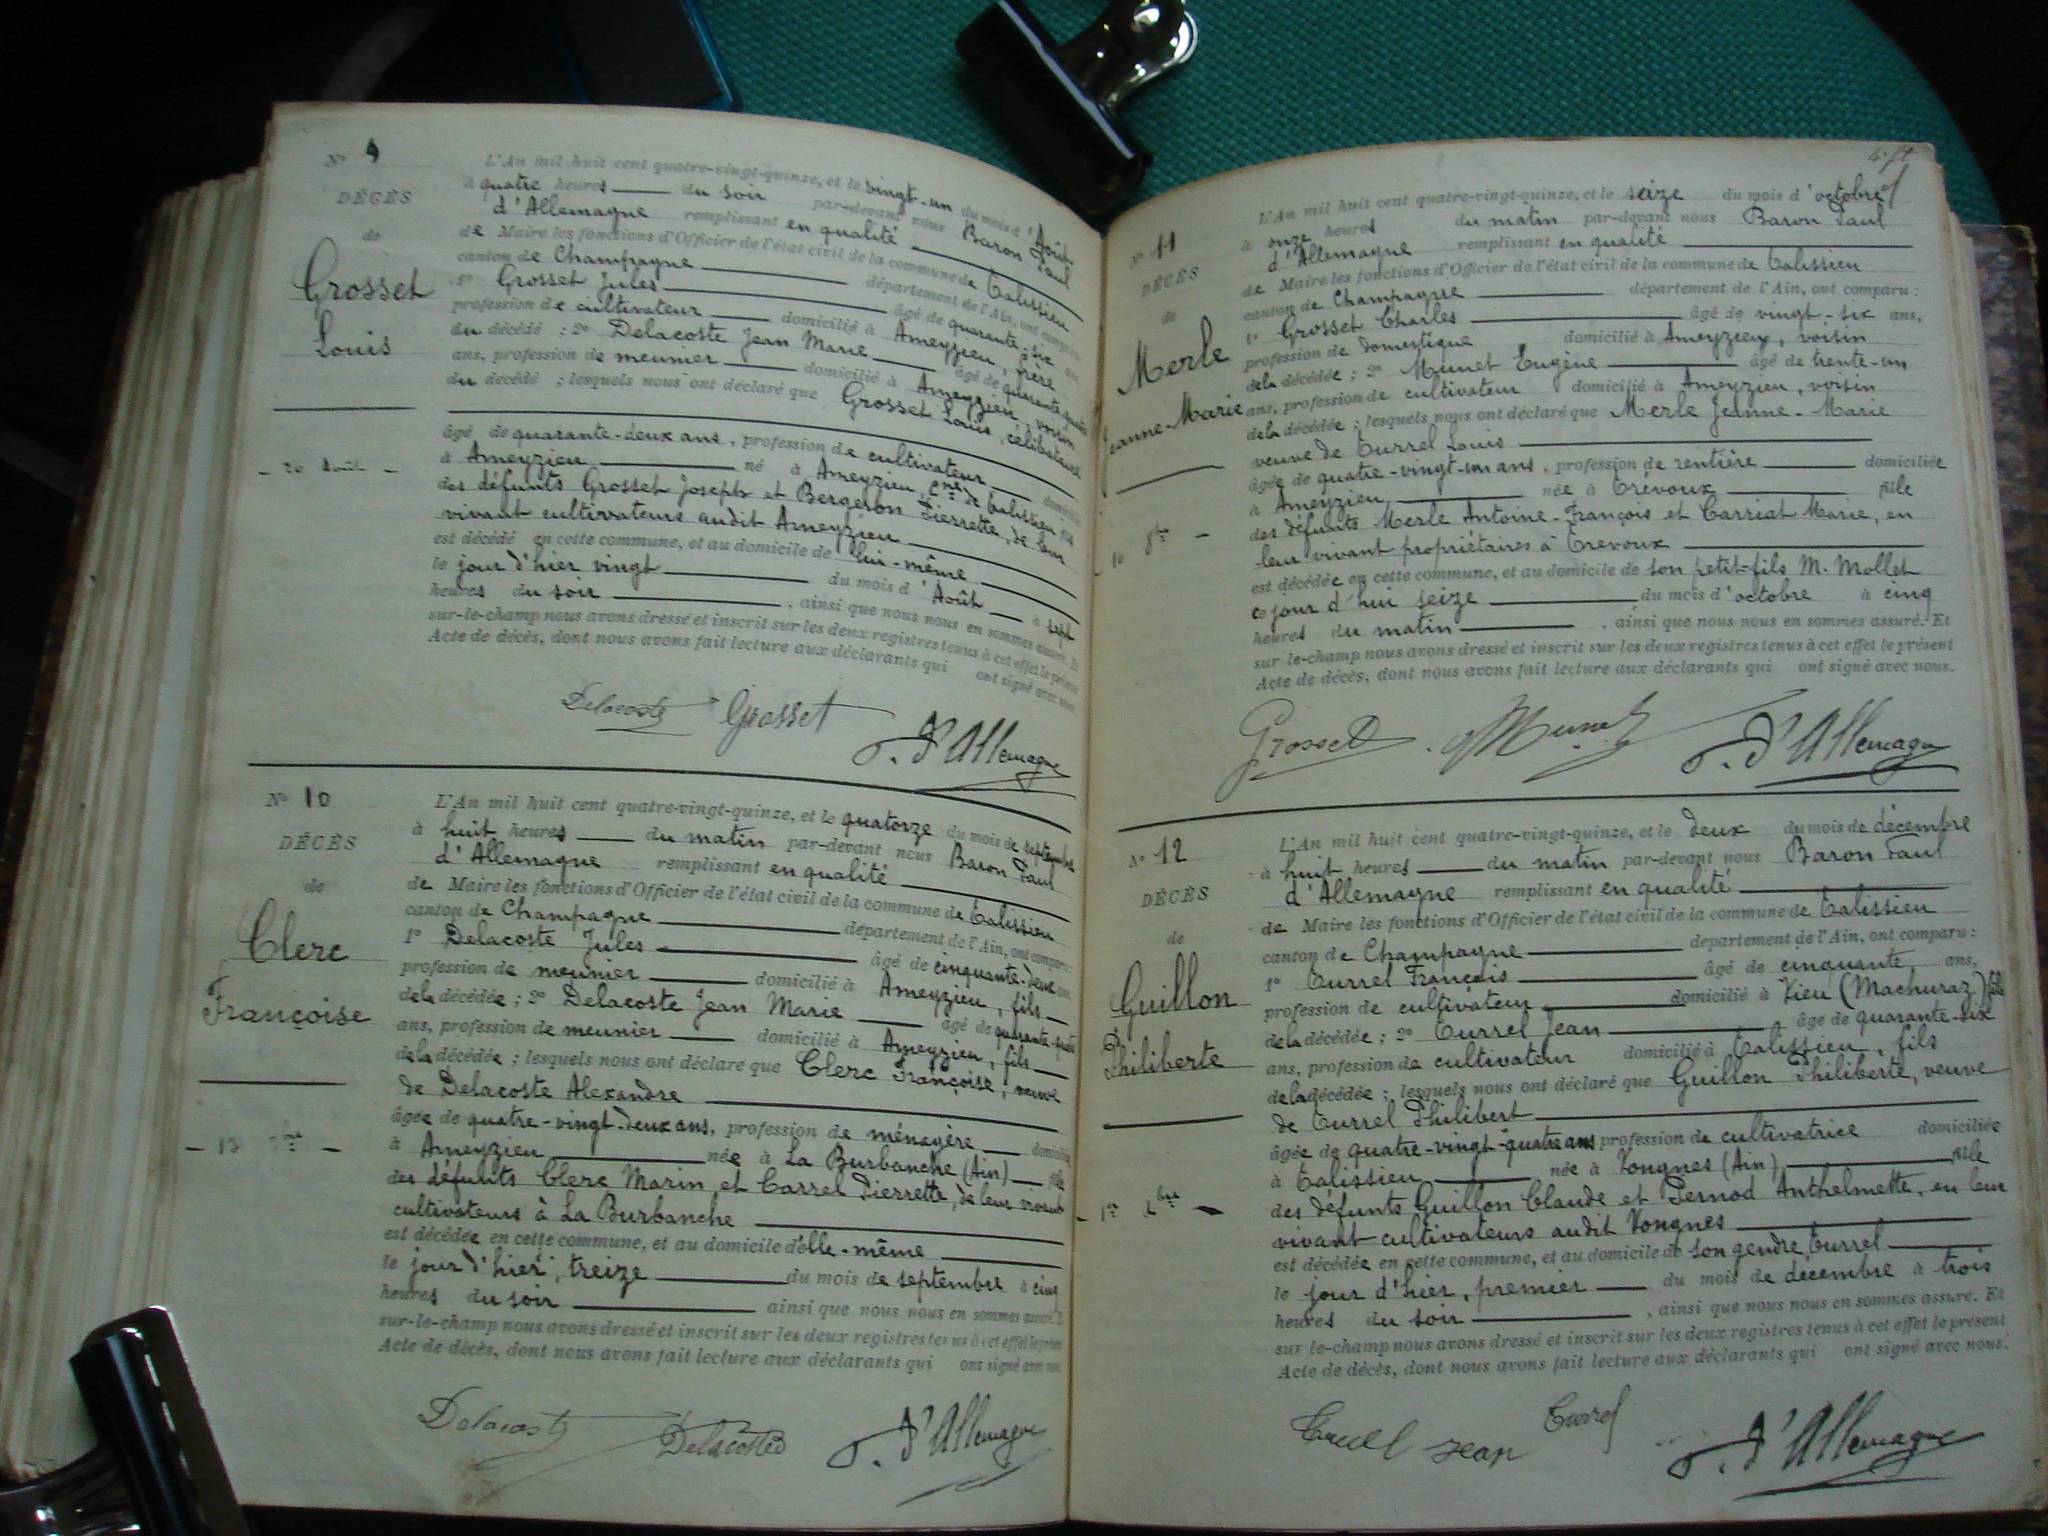 N° 9
DÉCÈS
de
Grosset
Louis
- 20 Août -
L'An mil huit cent quatre-vingt-quinze, et le vingt-un du mois d'Août
à quatre heures du soir par-devant nous Baron Paul
d'Allemagne remplissant en qualité
de Maire les fonctions d'Officier de l'état civil de la commune de Talissieu
canton de Champagne département de l'Ain, ont comparu
1° Grosset Jules âgé de quarante-six ans,
profession de cultivateur domicilié à Ameyzieu, frère
du décédé ; 2° Delacoste Jean Marie âgé de quarante-quatre
ans, profession de meunier domicilié à Ameyzieu, voisin
du décédé ; lesquels nous ont déclaré que Grosset Louis, célibataire
âgé de quarante-deux ans, profession de cultivateur domicilié
à Ameyzieu né à Ameyzieu, cne de Talissieu fils
des défunts Grosset Joseph et Bergeron Pierrette, de leur
vivant cultivateurs audit Ameyzieu
est décédé en cette commune, et au domicile de lui-même
le jour d'hier vingt du mois d'Août à sept
heures du soir , ainsi que nous nous en sommes assuré. Et
sur-le-champ nous avons dressé et inscrit sur les deux registres tenus à cet effet le présent
Acte de décès, dont nous avons fait lecture aux déclarants qui ont signé avec nous.
Delacoste Grosset P. d'Allemagne
N° 10
DÉCÈS
de
Clerc
Françoise
- 13 7bre -
L'An mil huit cent quatre-vingt-quinze, et le quatorze du mois de septembre
à huit heures du matin par-devant nous Baron Paul
d'Allemagne remplissant en qualité
de Maire les fonctions d'Officier de l'état civil de la commune de Talissieu
canton de Champagne département de l'Ain, ont comparu :
1° Delacoste Jules âgé de cinquante-deux ans
profession de meunier domicilié à Ameyzieu, fils
de la décédée ; 2° Delacoste Jean Marie âgé de quarante-quatre
ans, profession de meunier domicilié à Ameyzieu, fils
de la décédée ; lesquels nous ont déclaré que Clerc Françoise, veuve
de Delacoste Alexandre
âgée de quatre-vingt-deux ans, profession de ménagère domiciliée
à Ameyzieu née à La Burbanche (Ain) fille
des défunts Clerc Marin et Carrel Pierrette, de leur vivant
cultivateurs à La Burbanche
est décédée en cette commune, et au domicile d'elle-même
le jour d'hier, treize du mois de septembre à cinq
heures du soir ainsi que nous nous en sommes assuré. Et
sur-le-champ nous avons dressé et inscrit sur les deux registres tenus à cet effet le présent
Acte de décès, dont nous avons fait lecture aux déclarants qui ont signé avec nous.
Delacoste Delacoste P. d'Allemagne
N° 11
DÉCÈS
de
Merle
Jeanne-Marie
- 16 8bre -
L'An mil huit cent quatre-vingt-quinze, et le seize du mois d'octobre
à onze heures du matin par-devant nous Baron Paul
d'Allemagne remplissant en qualité
de Maire les fonctions d'Officier de l'état civil de la commune de Talissieu
canton de Champagne département de l'Ain, ont comparu :
1° Grosset Charles âgé de vingt-six ans,
profession de domestique domicilié à Ameyzieu, voisin
de la décédée ; 2° Munet Eugène âgé de trente-un
ans, profession de cultivateur domicilié à Ameyzieu, voisin
de la décédée ; lesquels nous ont déclaré que Merle Jeanne-Marie
veuve de Turrel Louis
âgée de quatre-vingt-un ans, profession de rentière domiciliée
à Ameyzieu née à Trévoux fille
des défunts Merle Antoine-François et Carriat Marie, en
leur vivant propriétaires à Trevoux
est décédée en cette commune, et au domicile de son petit-fils M. Mollet
ce jour d'hui seize du mois d'octobre à cinq
heures du matin , ainsi que nous nous en sommes assuré. Et
sur-le-champ nous avons dressé et inscrit sur les deux registres tenus à cet effet le présent
Acte de décès, dont nous avons fait lecture aux déclarants qui ont signé avec nous.
Grosset Munet P. d'Allemagne
N° 12
DÉCÈS
de
Guillon
Philiberte
- 1er Xbre -
L'An mil huit cent quatre-vingt-quinze, et le deux du mois de décembre
à huit heures du matin par-devant nous Baron Paul
d'Allemagne remplissant en qualité
de Maire les fonctions d'Officier de l'état civil de la commune de Talissieu
canton de Champagne département de l'Ain, ont comparu :
1° Turrel François âgé de cinquante ans,
profession de cultivateur domicilié à Vieu (Machuraz) fils
de la décédée ; 2° Turrel Jean âgé de quarante-six
ans, profession de cultivateur domicilié à Talissieu, fils
de la décédée ; lesquels nous ont déclaré que Guillon Philiberte, veuve
de Turrel Philibert
âgée de quatre-vingt-quatre ans profession de cultivatrice domiciliée
à Talissieu née à Vongnes (Ain) fille
des défunts Guillon Claude et Pernod Anthelmette, en leur
vivant cultivateurs audit Vongnes
est décédée en cette commune, et au domicile de son gendre Turrel
le jour d'hier, premier du mois de décembre à trois
heures du soir , ainsi que nous nous en sommes assuré. Et
sur-le-champ nous avons dressé et inscrit sur les deux registres tenus à cet effet le présent
Acte de décès, dont nous avons fait lecture aux déclarants qui ont signé avec nous.
Turrel Jean Turrel P. d'Allemagne